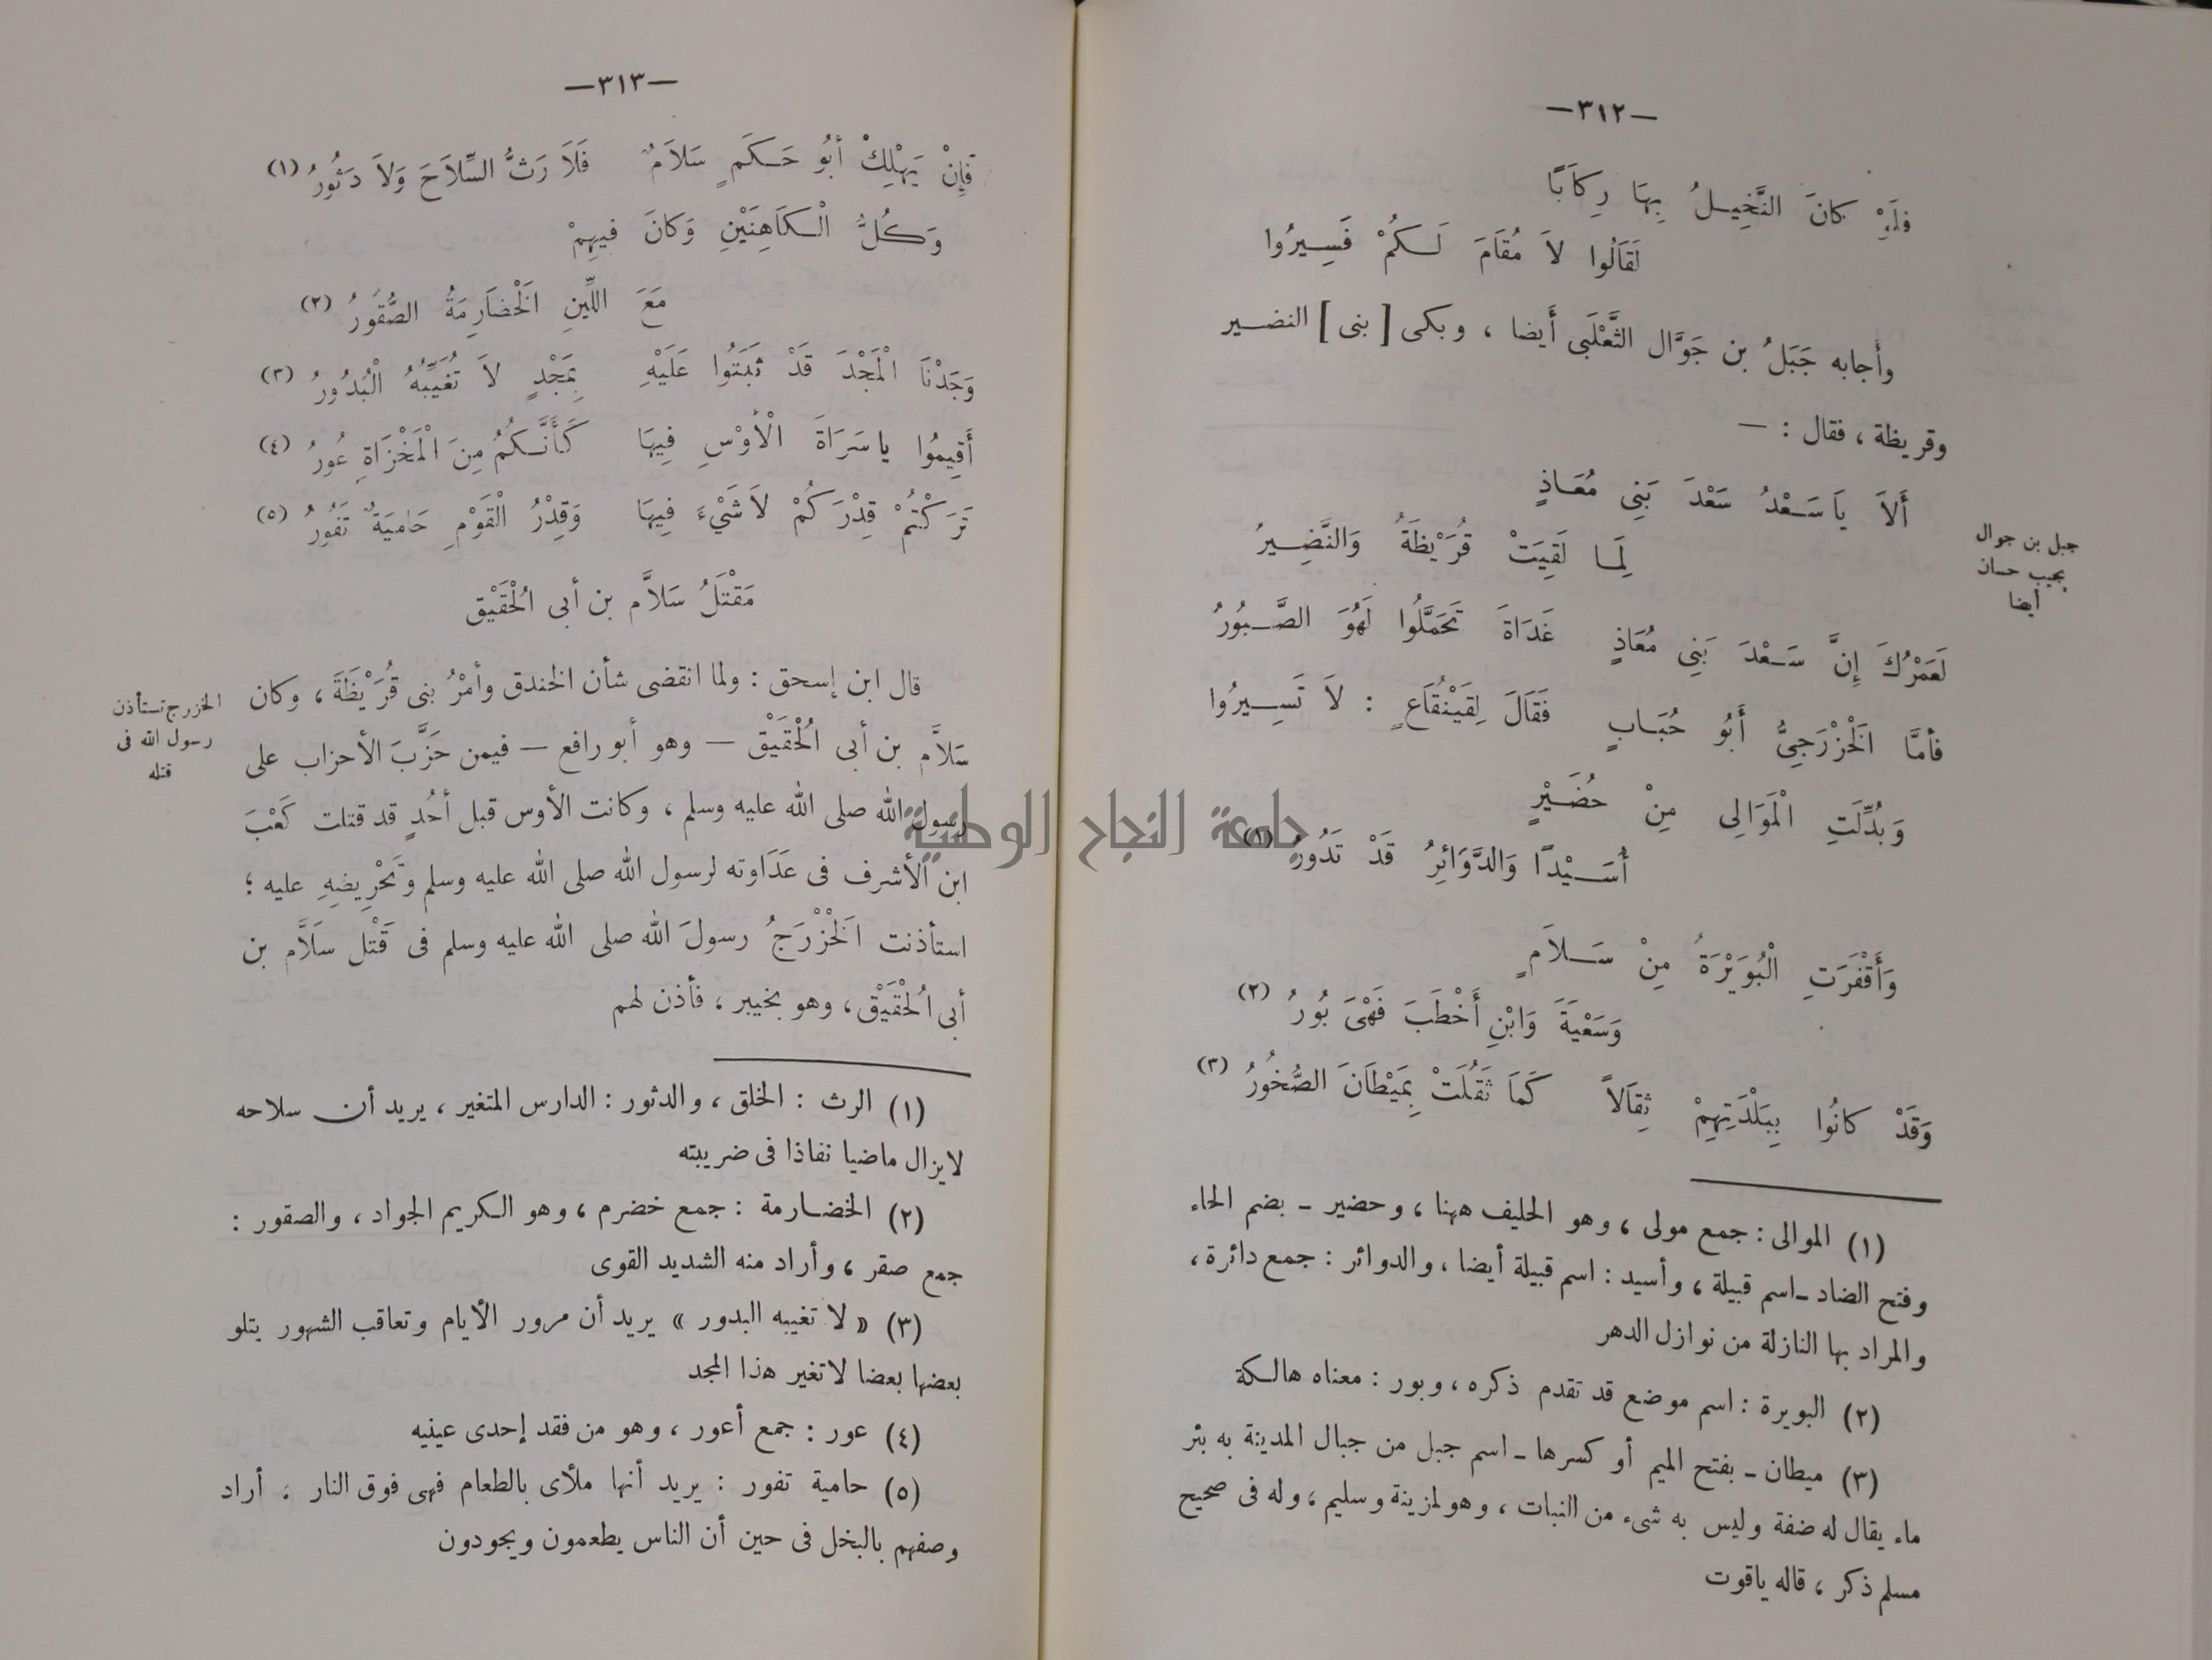 —٣١٢—
فلَوْ كانَ النَّخِيلُ بِهَا رِكَابًا
لَقَالُوا لاَ مُقَامَ لَكُمْ فَسِيرُوا
وأَجابه جَبَلُ بن جَوَّال الثَّعْلَبى أَيضا ، وبكى [ بنى ] النضير
وقريظة ، فقال : —
أَلاَ يَا سَعْدُ سَعْدَ بَنِى مُعَاذٍ
لِمَا لَقِيَتْ قُرَيْظَةُ وَالنَّضِيرُ
جبل بن جوال
يجيب حسان
أيضا
لَعَمْرُكَ إِنَّ سَعْدَ بَنِى مُعَاذٍ غَدَاةَ تَحَمَّلُوا لَهُوَ الصَّبُورُ
فأمَّا الَخْزْرَجِىُّ أَبُو حُبَابٍ فَقَالَ لِقَيْنُقَاعٍ : لاَ تَسِيرُوا
وَبُدِّلَتِ الْمَوَالِى مِنْ حُضَيْرٍ
أُسَيْدًا وَالدَّوَائِرُ قَدْ تَدُورُ (١)
وَأَقْفَرَتِ الْبُوَيْرَةُ مِنْ سَلاَمٍ
وَسَعْيَةَ وَابْنِ أَخْطَبَ فَهْىَ بُورُ (٢)
وَقَدْ كانُوا بِبَلْدَتِهِمْ ثِقاَلاً كَمَا ثَقُلَتْ بِمَيْطَانَ الصُّخُورُ (٣)
(١) الموالى : جمع مولى ، وهو الحليف ههنا ، وحضير - بضم الحاء
وفتح الضاد - اسم قبيلة ، وأسيد : اسم قبيلة أيضا ، والدوائر : جمع دائرة ،
والمراد بها النازلة من نوازل الدهر
(٢) البويرة : اسم موضع قد تقدم ذكره ، وبور : معناه هالكة
(٣) ميطان - بفتح الميم أو كسرها - اسم جبل من جبال المدينة به بئر
ماء يقال له ضفة وليس به شىء من النبات ، وهو لمزينة وسليم ، وله فى صحيح
مسلم ذكر ، قاله ياقوت
—٣١٣—
فَإِنْ يَهْلِكْ أبُو حَكَمٍ سَلاَمٌ فَلاَ رَثُّ السِّلاَحَ وَلاَ دَثُورُ (١)
وَكُلُّ الْكَاهِنَيْنِ وَكانَ فيهِمْ
مَعَ اللِّينِ الَخْضاَرِمَةُ الصُّقُورُ (٢)
وَجَدْنَا الْمَجْدَ قَدْ ثَبَتُوا عَلَيْهِ بِمَجْدٍ لاَ تُغَيِّبُهُ الْبُدُورُ (٣)
أَقِيمُوا يا سَرَاةَ الْأوْسِ فِيهَا كَأَنَّكُمُ مِنَ الْمَخْزَاةِ عُورُ (٤)
تَرَكْتُمْ قِدْرَكُمْ لاَ شَىْءَ فِيهَا وَقِدْرُ الْقَوْمِ حَامِيَةٌ تَفُورُ (٥)
مَقْتَلُ سَلاَّم بن أبى الُحْقَيْق
قال ابن إسحق : ولما انقضى شأن الخندق وأمْرُ بنى قُرَيْظَةَ ، وكان
سَلاَّم بن أبى الُحْقَيْق — وهو أبو رافع — فيمن حَزَّبَ الأحزاب على
الخزرج تستأذن
رسول الله فى
قتله
رسول الله صلى الله عليه وسلم ، وكانت الأوس قبل أُحُدٍ قد قتلت كَعْبَ
ابن الأشرف فى عَدَاوته لرسول الله صلى الله عليه وسلم وتَحْرِيضِهِ عليه ؛
استأذنت الَخْزْرَجُ رسولَ الله صلى الله عليه وسلم فى قَتْل سَلاَّم بن
أبى الُحْقَيْق ، وهو بخيبر ، فأذن لهم
(١) الرث : الخلق ، والدثور : الدارس المتغير ، يريد أن سلاحه
لايزال ماضيا نفاذا فى ضريبته
(٢) الخضارمة : جمع خضرم ، وهو الكريم الجواد ، والصقور :
جمع صقر ، وأراد منه الشديد القوى
(٣) « لا تغيبه البدور » يريد أن مرور الأيام وتعاقب الشهور يتلو
بعضها بعضا لاتغير هذا المجد
(٤) عور : جمع أعور ، وهو من فقد إحدى عينيه
(٥) حامية تفور : يريد أنها ملأى بالطعام فهى فوق النار . أراد
وصفهم بالبخل فى حين أن الناس يطعمون ويجودون
جامعة النجاح الوطنية